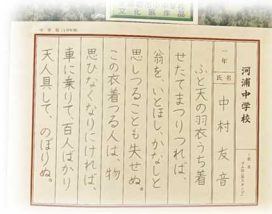 河浦中学校
一年
氏名
中村友音
ふと天の羽衣うち着
せたてまつりつれば、
翁を、いとほし、かなしと
思しつることも失せぬ。
この衣着つる人は、物
思ひなくなりにければ、
車に乗りて、百人ばかり
天人具して、のぼりぬ。